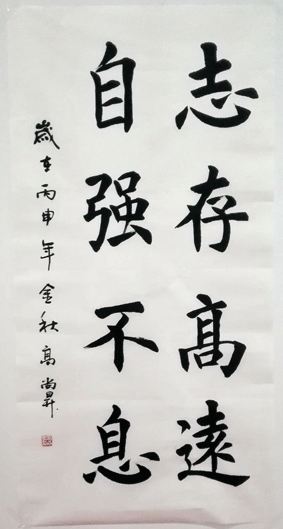 志存髙遠
自强不息
歲在丙申年金秋髙尚昇